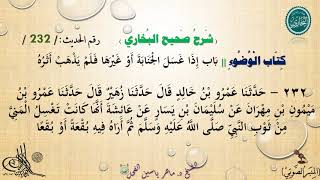 شرح صحيح البخاري
رقم الحديث: / 232 /
كِتَاب الْوُضُوءِ || بَاب إِذَا غَسَلَ الْجَنَابَةَ أَوْ غَيْرَهَا فَلَمْ يَذْهَبْ أَثَرُهُ
٢٣٢ - حَدَّثَنَا عَمْرُو بْنُ خَالِدٍ قَالَ حَدَّثَنَا زُهَيْرٌ قَالَ حَدَّثَنَا عَمْرُو بْنُ
مَيْمُونِ بْنِ مِهْرَانَ عَنْ سُلَيْمَانَ بْنِ يَسَارٍ عَنْ عَائِشَةَ أَنَّهَا كَانَتْ تَغْسِلُ الْمَنِيَّ
مِنْ ثَوْبِ النَّبِيِّ صَلَّى اللَّهُ عَلَيْهِ وَسَلَّمَ ثُمَّ أَرَاهُ فِيهِ بُقْعَةً أَوْ بُقَعًا
الشيخ د. ماهر ياسين الفحل